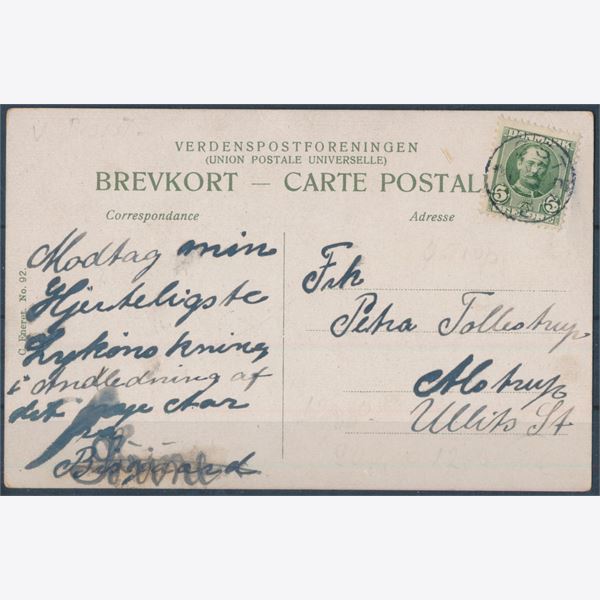 VERDENSPOSTFORENINGEN
(UNION POSTALE UNIVERSELLE)
BREVKORT — CARTE POSTAL
Correspondance
Adresse
DANMARK
5 5
C. Eneret. No. 92.
Modtag min
Hjerteligste
Lykønskning
i Andledning af
det nye Aar
Frk
Petra Tollestrup
Alstrup
Ullits St